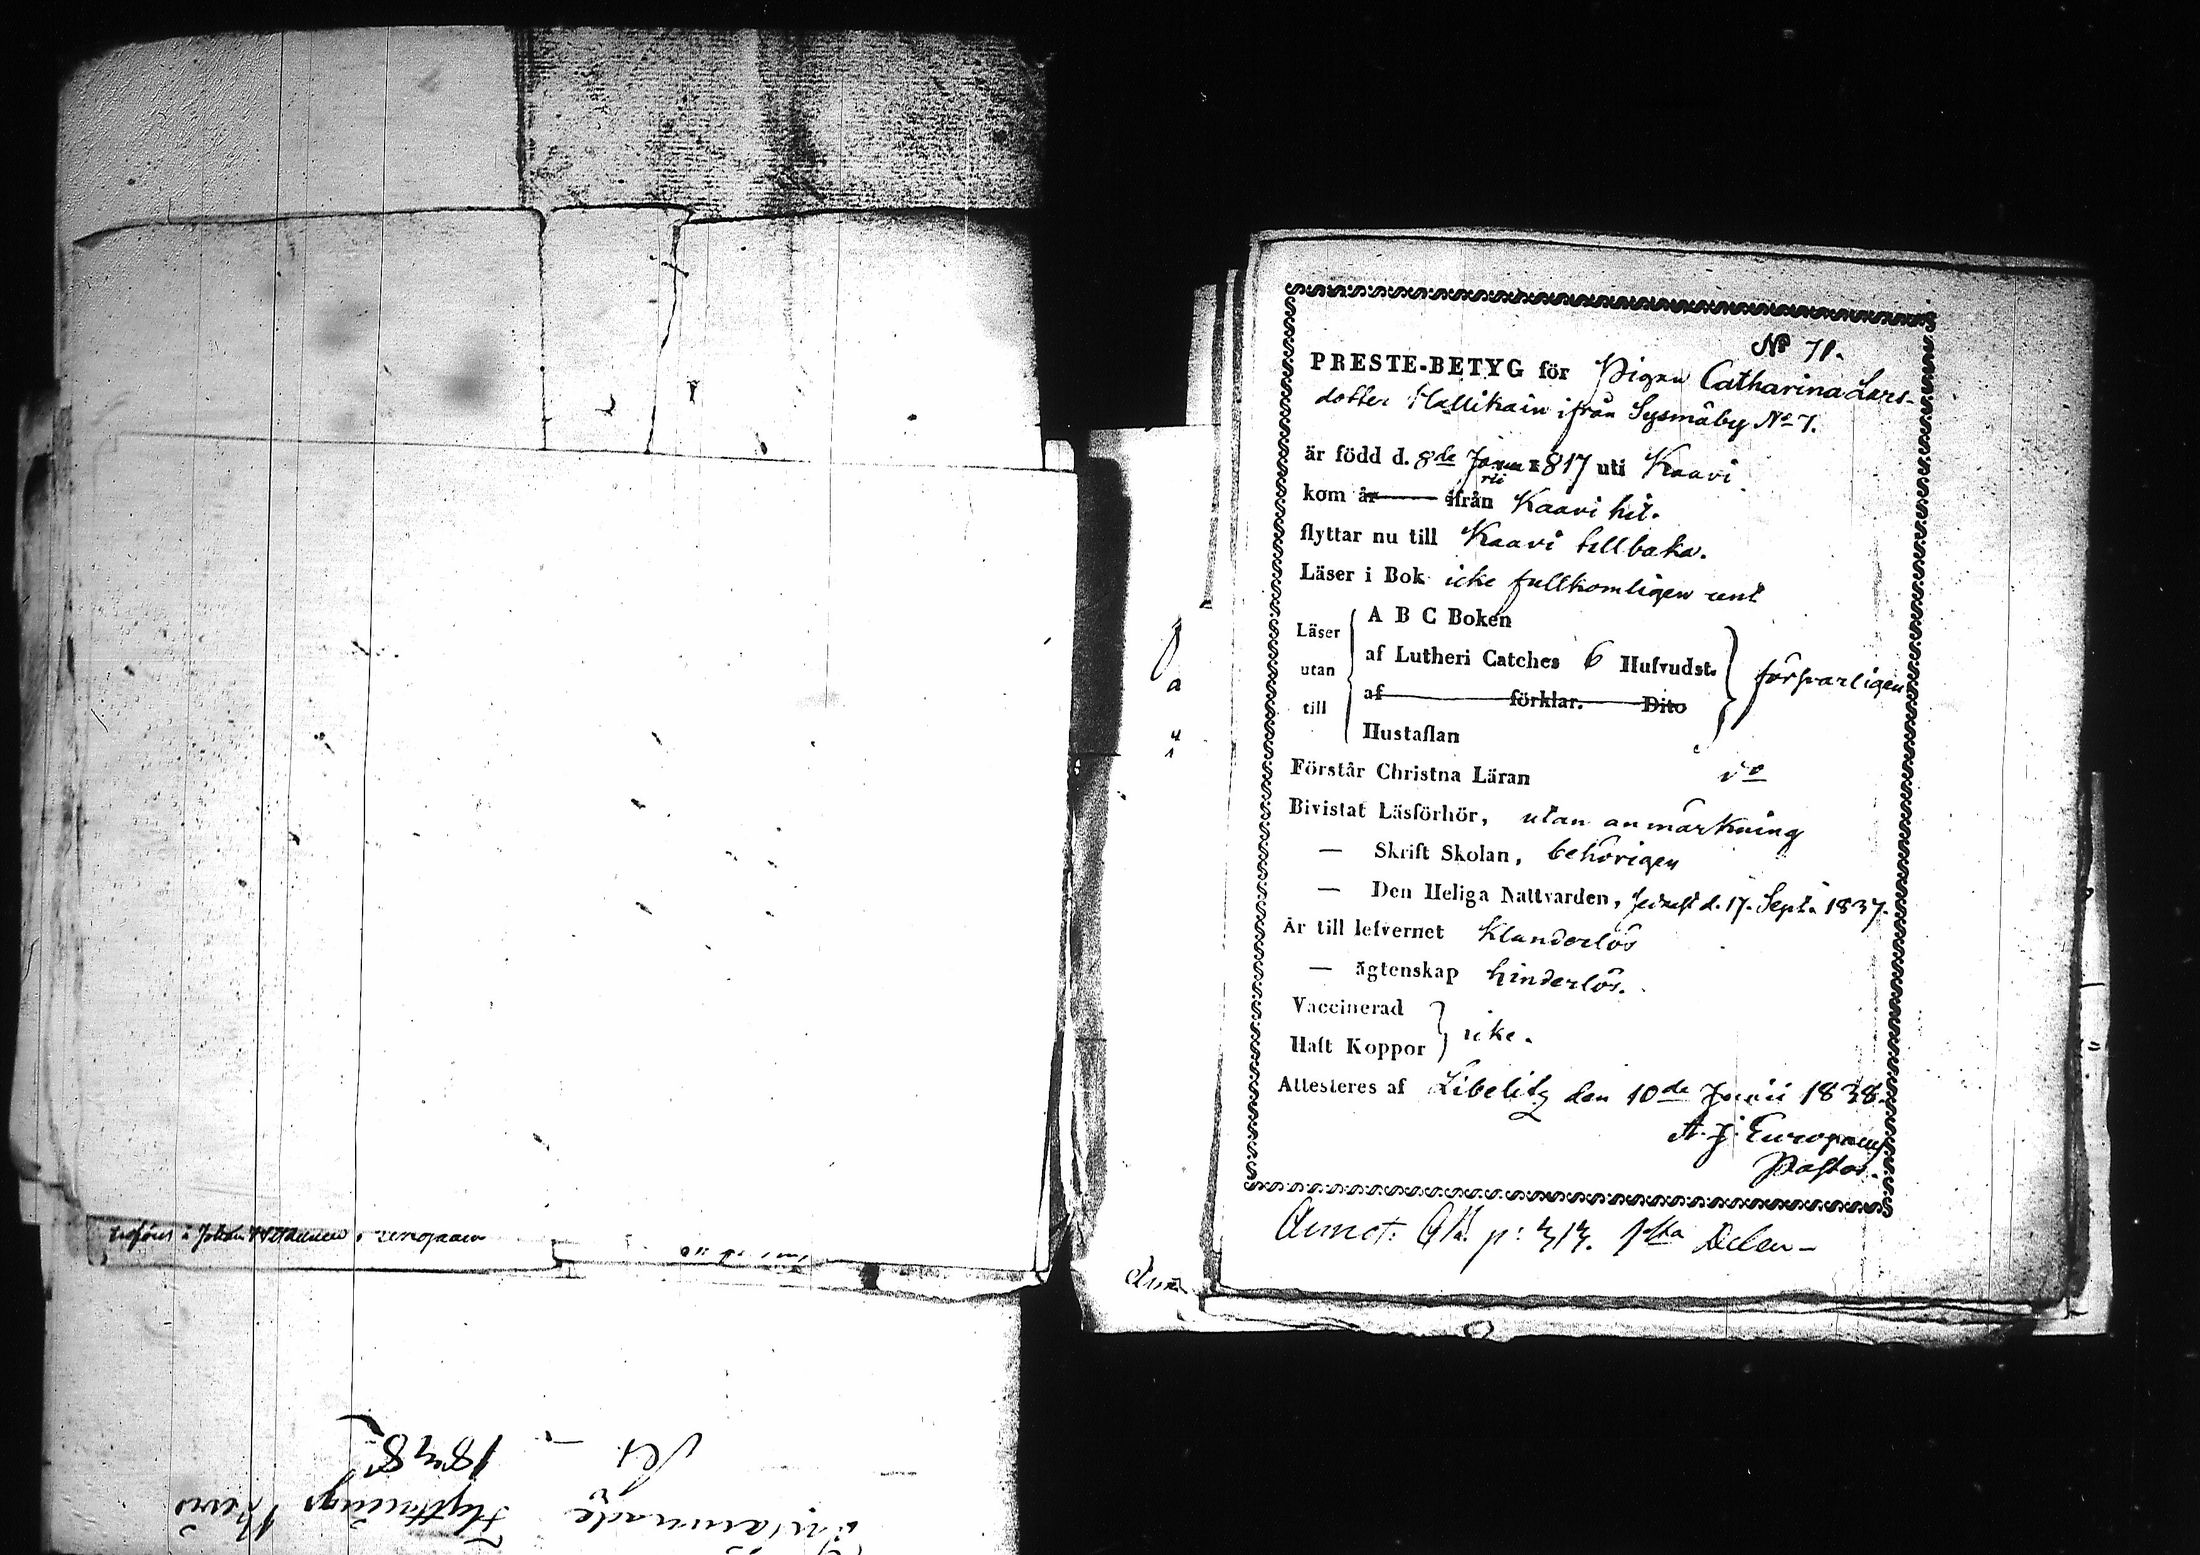 No 71.
PRESTE-BETYG för Pigan Catharina Lars-
dotter Hallikain ifrån Sysmäby No 7.
är född d. 8de Janua 1817 uti Kaavi
rii
kom år ifrån Kaavi hit.
flyttar nu till Kaavi tillbaka.
Läser i Bok icke fullkomligen rent
Läser utan till
A B C Boken
af Lutheri Catches 6 Hufvudst.
af förklar. Dito
Hustaflan
försvarligen
Förstår Christna Läran do
Bivistat Läsförhör, utan anmärkning
— Skrift Skolan, behörigen
— Den Heliga Nattvarden, senast d. 17. Sept. 1837.
Är till lefvernet klanderlös
— ägtenskap hinderlös.
Vaccinerad
Haft Koppor
icke.
Attesteres af Libelitz den 10de Junii 1838.
A. J. Europaeus
Pastor.
Annot. p: 313. 1sta Delen-
Flyttnings Bevis
1848